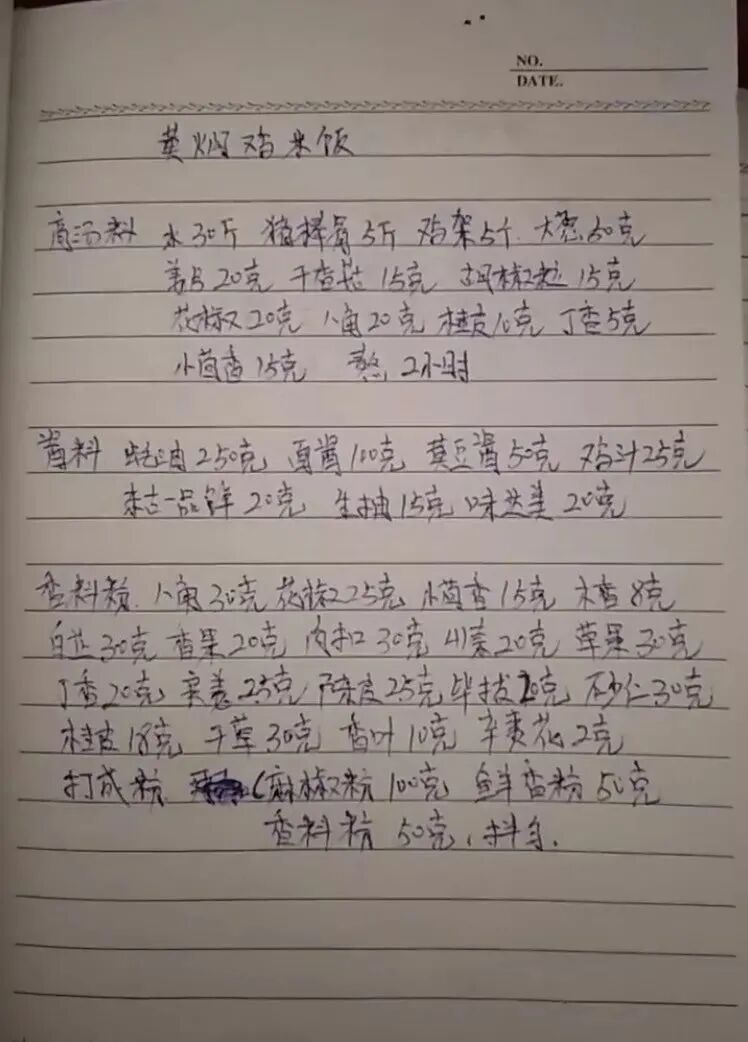 NO.
DATE.
黄焖鸡米饭
高汤料 水30斤 猪棒骨5斤 鸡架5个. 大葱50克
姜片20克 干香菇15克 胡椒粒15克
花椒20克 八角20克 桂皮10克 丁香5克
小茴香15克 熬2小时
酱料 蚝油250克 面酱100克 黄豆酱50克 鸡汁25克
东古一品鲜20克 生抽15克 味达美20克
香料粉. 八角30克 花椒225克 小茴香15克 木香8克
白芷30克 香果20克 肉扣30克 山奈20克 草果30克
丁香20克 良姜25克 陈皮25克 毕拔20克 砂仁30克
桂皮18克 干草30克 香叶10克 辛夷花2克
打成粉 (麻椒粉100克 鲜香粉50克
香料粉 50克, 抖匀.